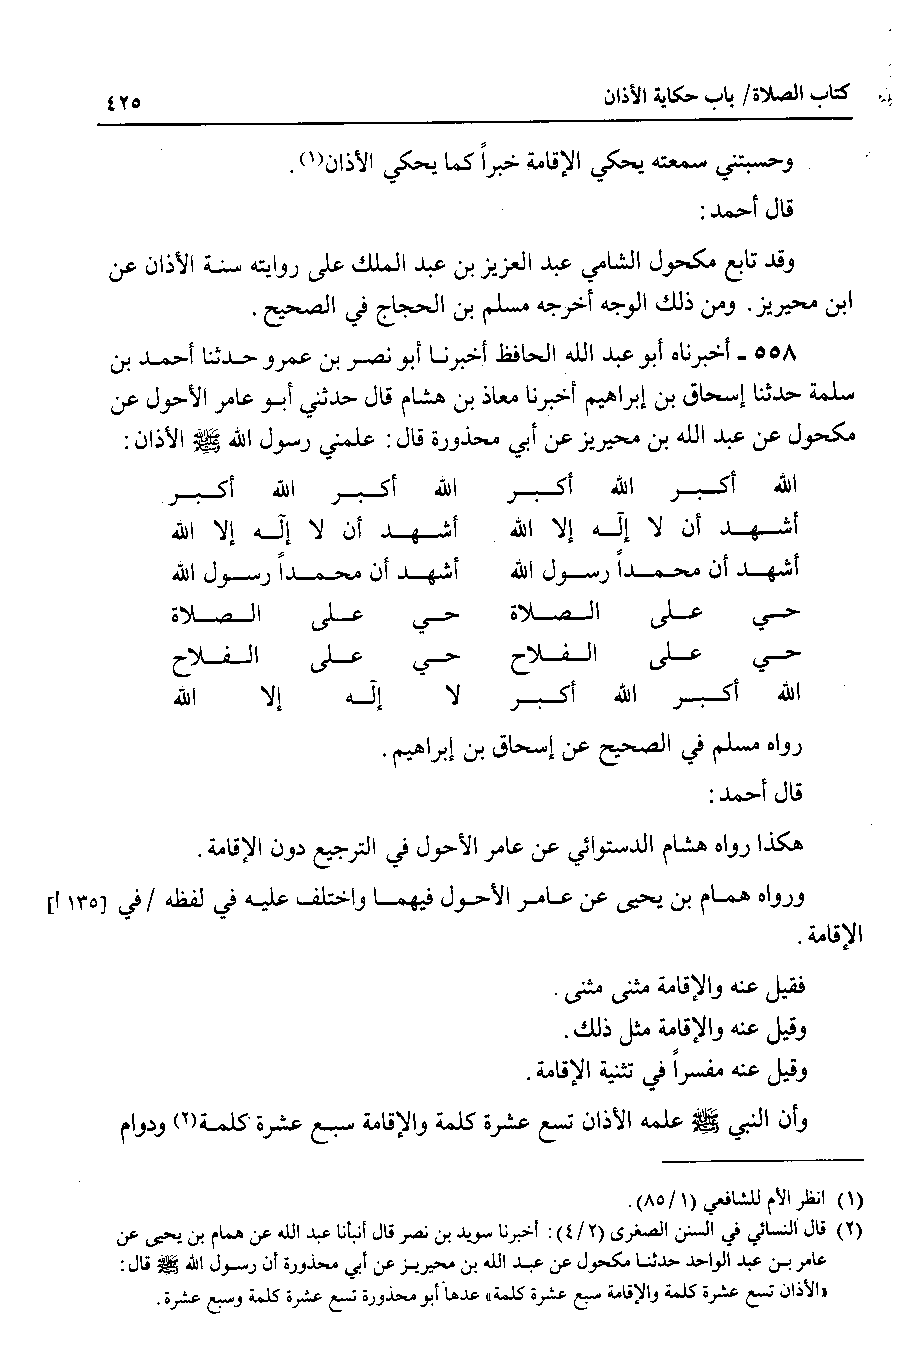 كتاب الصلاة/ باب حكاية الأذان ٤٢٥
وحسبتني سمعته يحكي الإقامة خبراً كما يحكي الأذان(١).
قال أحمد:
وقد تابع مكحول الشامي عبد العزيز بن عبد الملك على روايته سنة الأذان عن
ابن محيريز. ومن ذلك الوجه أخرجه مسلم بن الحجاج في الصحيح.
٥٥٨ ـ أخبرناه أبو عبد الله الحافظ أخبرنا أبو نصر بن عمرو حدثنا أحمد بن
سلمة حدثنا إسحاق بن إبراهيم أخبرنا معاذ بن هشام قال حدثني أبو عامر الأحول عن
مكحول عن عبد الله بن محيريز عن أبي محذورة قال: علمني رسول الله ﷺ الأذان:
الله أكبر الله أكبر الله أكبر الله أكبر
أشهد أن لا إله إلا الله أشهد أن لا إله إلا الله
أشهد أن محمداً رسول الله أشهد أن محمداً رسول الله
حي على الصلاة حي على الصلاة
حي على الفلاح حي على الفلاح
الله أكبر الله أكبر لا إله إلا الله
رواه مسلم في الصحيح عن إسحاق بن إبراهيم.
قال أحمد:
هكذا رواه هشام الدستوائي عن عامر الأحول في الترجيع دون الإقامة.
ورواه همام بن يحيى عن عامر الأحول فيهما واختلف عليه في لفظه / في [١٣٥ أ]
الإقامة.
فقيل عنه والإقامة مثنى مثنى.
وقيل عنه والإقامة مثل ذلك.
وقيل عنه مفسراً في تثنية الإقامة.
وأن النبي ﷺ علمه الأذان تسع عشرة كلمة والإقامة سبع عشرة كلمة(٢) ودوام
(١) انظر الأم للشافعي (٨٥/١).
(٢) قال النسائي في السنن الصغرى (٤/٢): أخبرنا سويد بن نصر قال أنبأنا عبد الله عن همام بن يحيى عن
عامر بن عبد الواحد حدثنا مكحول عن عبد الله بن محيريز عن أبي محذورة أن رسول الله ﷺ قال:
«الأذان تسع عشرة كلمة والإقامة سبع عشرة كلمة» عدها أبو محذورة تسع عشرة كلمة وسبع عشرة.